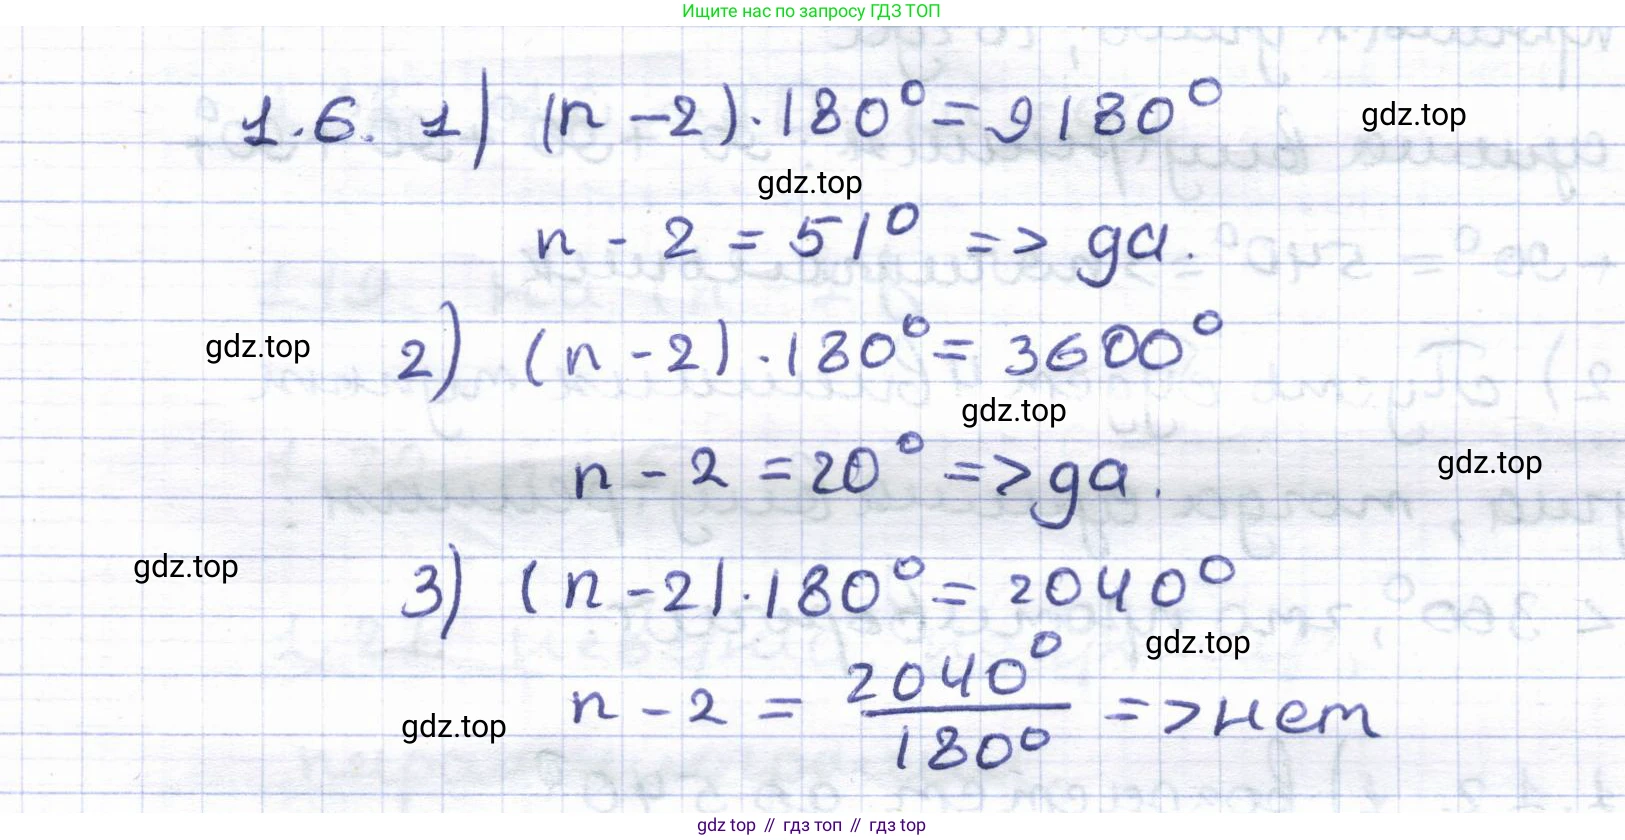 Ищите нас по запросу ГДЗ ТОП
1.6. 1) (n - 2) · 180° = 9180°
gdz.top
gdz.top
n - 2 = 51° => да.
2) (n - 2) · 180° = 3600°
gdz.top
gdz.top
n - 2 = 20° => да.
gdz.top
3) (n - 2) · 180° = 2040°
gdz.top
gdz.top
n - 2 = 2040° / 180° => нет
gdz.top
gdz top // гдз топ // гдз top